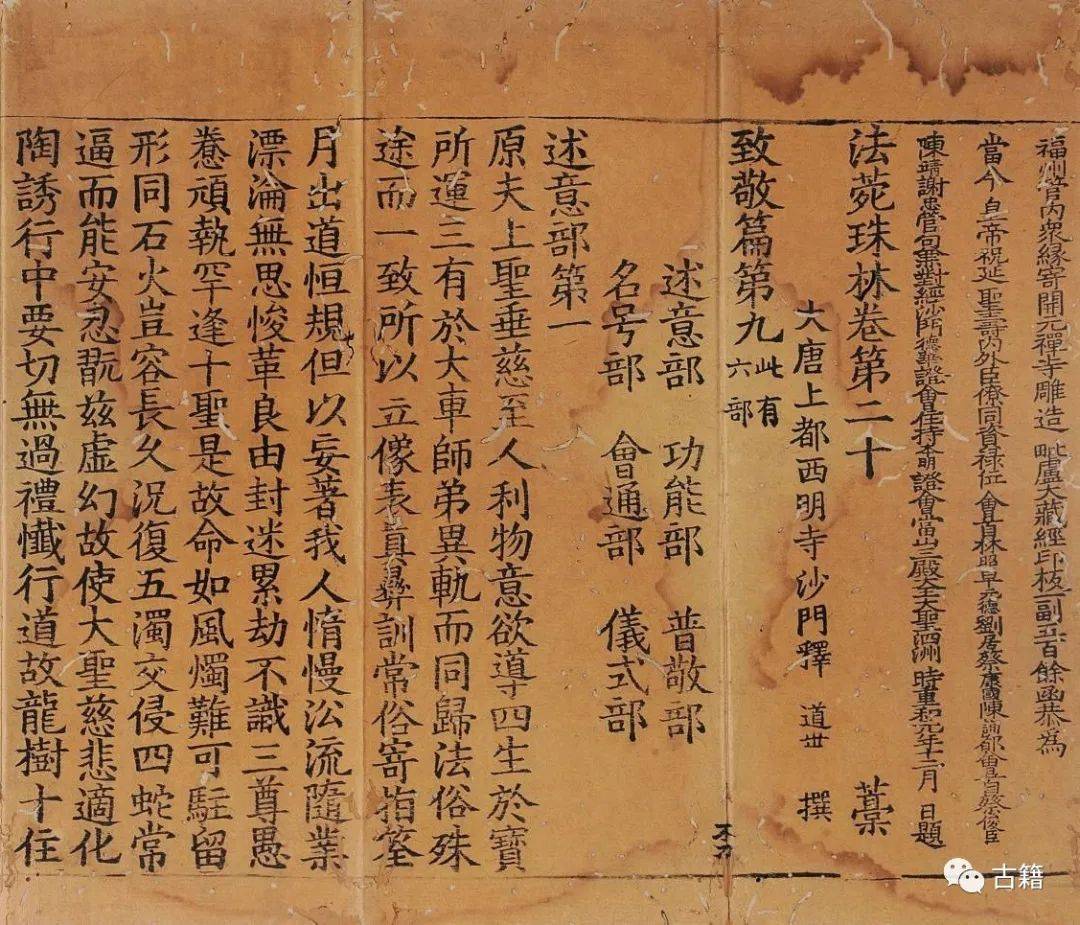 福州管內衆緣寄開元禪寺雕造 毗盧大藏經印板一副五百餘函恭為
當今 皇帝祝延 聖壽內外臣僚同資祿位 會首林昭 劉居 蔡康國 陳詢 蔡俊臣
陳靖 謝忠 管句 對經沙門 德華 證會住持本明 證會當山三殿大王大聖泗洲 時重和元年十二月 日題
法苑珠林卷第二十 藁
大唐上都西明寺沙門釋 道世 撰
致敬篇第九 此有六部
述意部 功能部 普敬部
名号部 會通部 儀式部
述意部第一
原夫上聖垂慈至人利物意欲導四生於寶
所運三有於大車師弟異軌而同歸法俗殊
途而一致所以立像表真彝訓常俗寄指筌
月出道恒規但以妄著我人惰慢沿流隨業
漂淪無思悛革良由封迷累劫不識三尊愚
惷頑執罕逢十聖是故命如風燭難可駐留
形同石火豈容長久況復五濁交侵四蛇常
逼而能安忍翫茲虛幻故使大聖慈悲適化
陶誘行中要切無過禮懺行道故龍樹十住
古籍